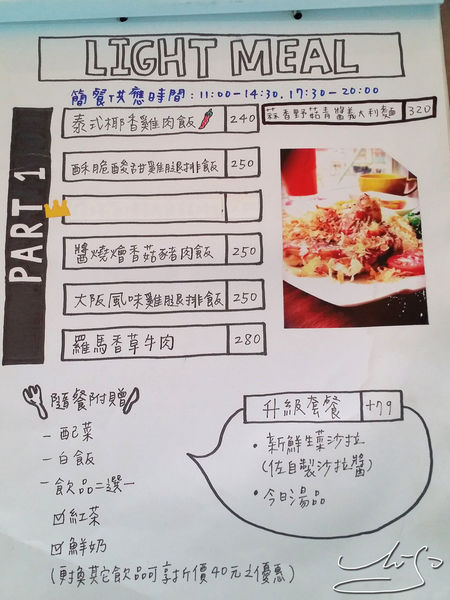 LIGHT MEAL
簡餐供應時間:11:00-14:30,17:30-20:00
PART 1
泰式椰香雞肉飯 240
蒜香野菇青醬義大利麵 320
酥脆酸甜雞腿排飯 250
醬燒燴香菇豬肉飯 250
大阪風味雞腿排飯 250
羅馬香草牛肉 280
隨餐附贈
－配菜
－白飯
－飲品二選一
☑紅茶
☑鮮奶
(更換其它飲品可享折價40元之優惠)
升級套餐 +79
•新鮮生菜沙拉
(佐自製沙拉醬)
•今日湯品